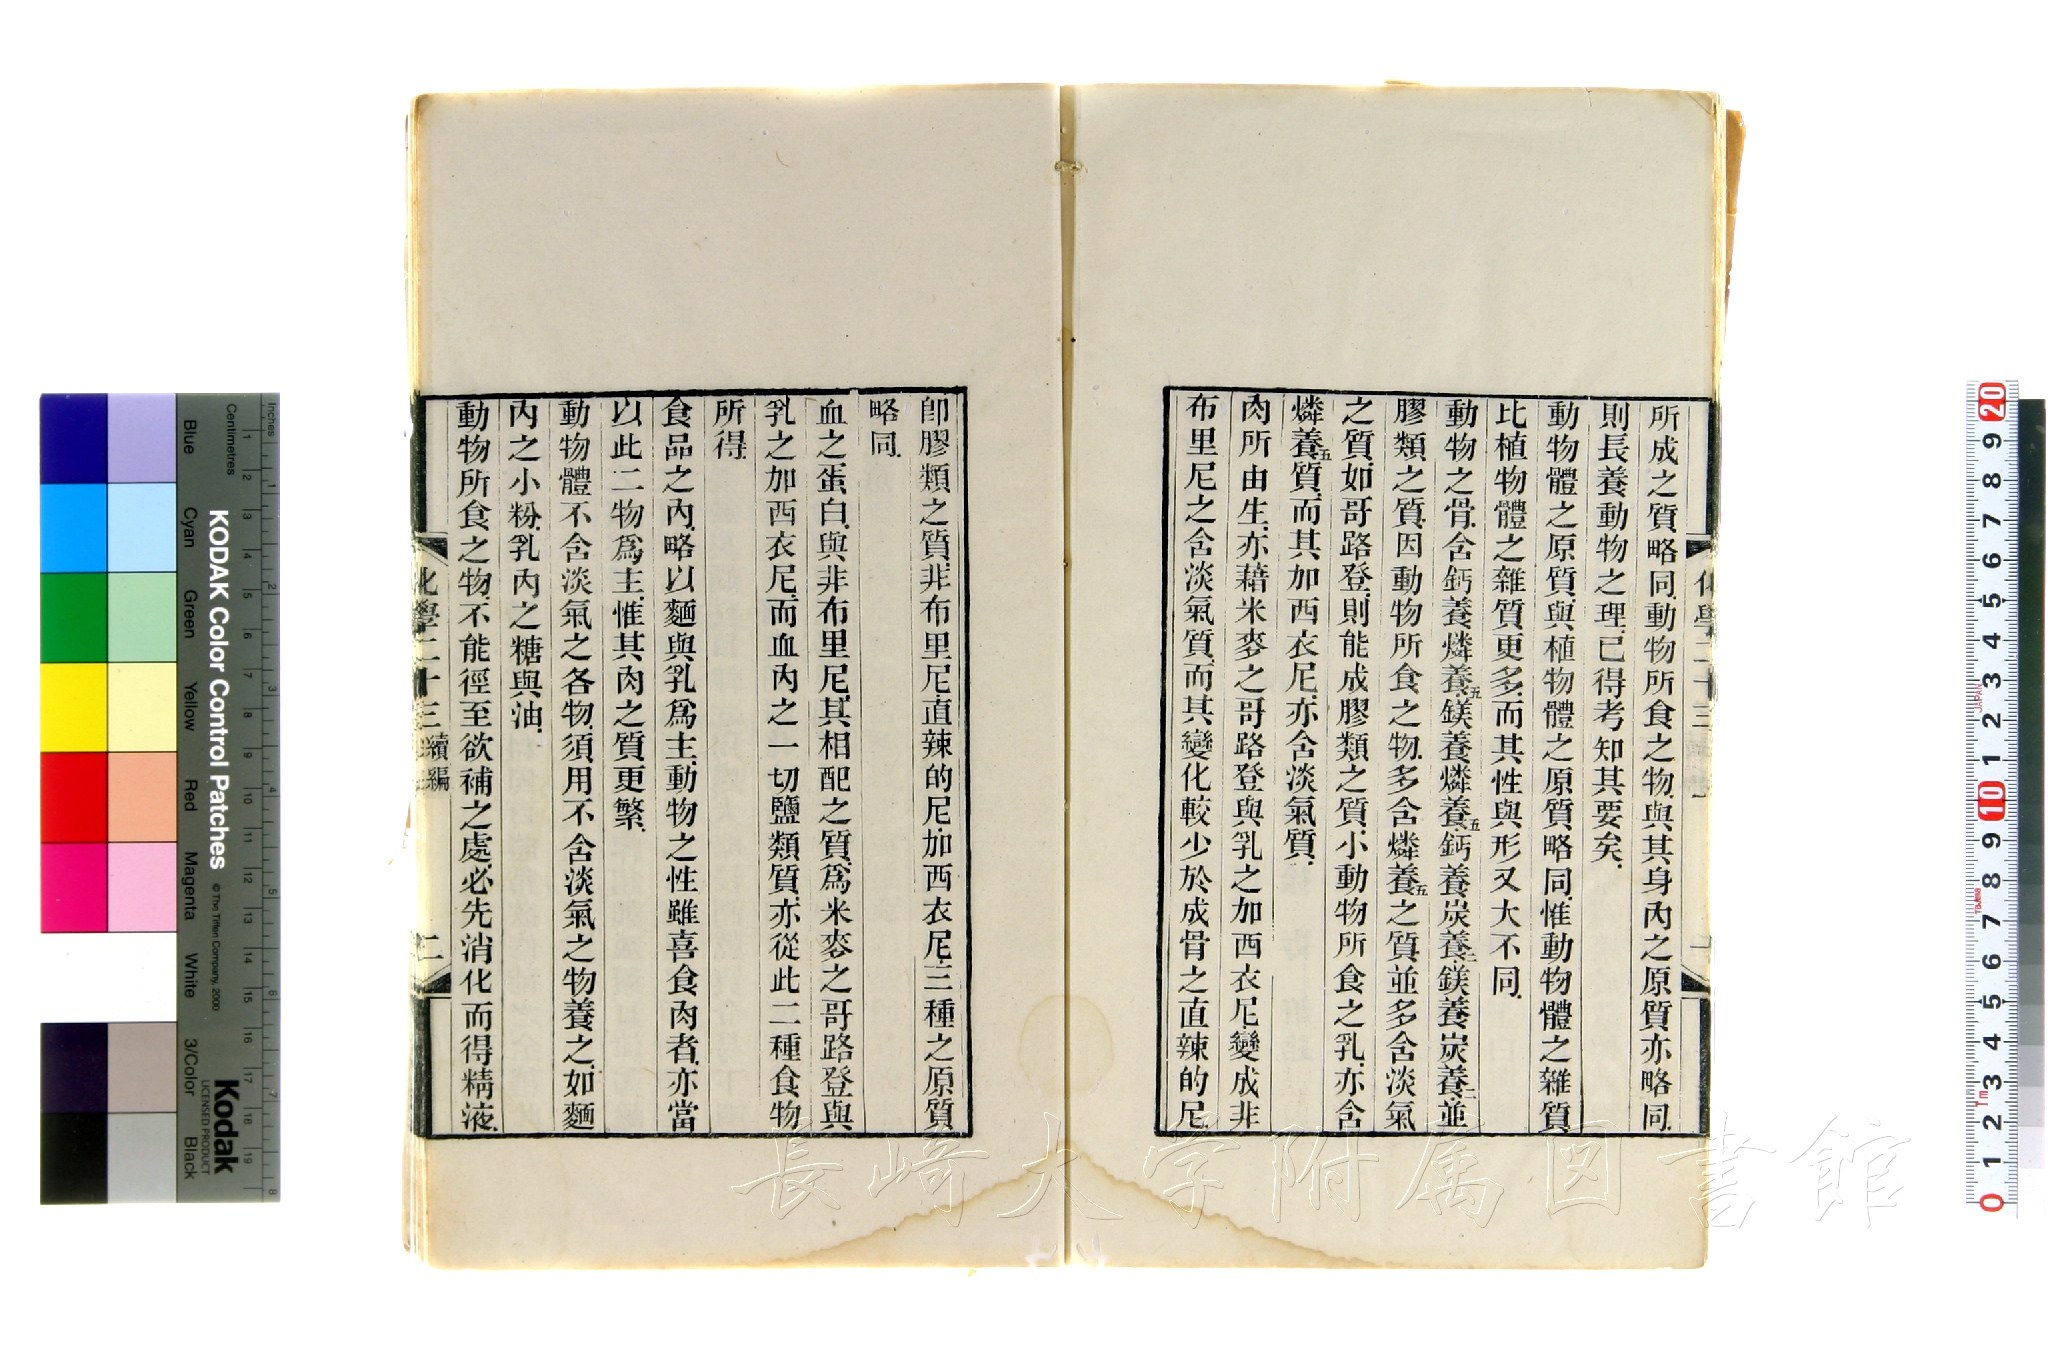 所成之質略同動物所食之物與其身內之原質亦略同
則長養動物之理已得考知其要矣
動物體之原質與植物體之原質略同惟動物體之雜質
比植物體之雜質更多而其性與形又大不同
動物之骨含鈣養燐養五鎂養燐養五鈣養炭養二鎂養炭養二並
膠類之質因動物所食之物多含燐養五之質並多含淡氣
之質如哥路登則能成膠類之質小動物所食之乳亦含
燐養五質而其加西衣尼亦含淡氣質
肉所由生亦藉米麥之哥路登與乳之加西衣尼變成非
布里尼之含淡氣質而其變化較少於成骨之直辣的尼
卽膠類之質非布里尼直辣的尼加西衣尼三種之原質
略同
血之蛋白與非布里尼其相配之質爲米麥之哥路登與
乳之加西衣尼而血內之一切鹽類質亦從此二種食物
所得
食品之內略以麵與乳爲主動物之性雖喜食肉者亦當
以此二物爲主惟其肉之質更繁
動物體不含淡氣之各物須用不含淡氣之物養之如麵
內之小粉乳內之糖與油
動物所食之物不能徑至欲補之處必先消化而得精液
化學二十三續編
二
長崎大学附属図書館
Inches
Centimetres
KODAK Color Control Patches
© The Tiffen Company, 2000
Blue
Cyan
Green
Yellow
Red
Magenta
White
3/Color
Black
Kodak
LICENSED PRODUCT